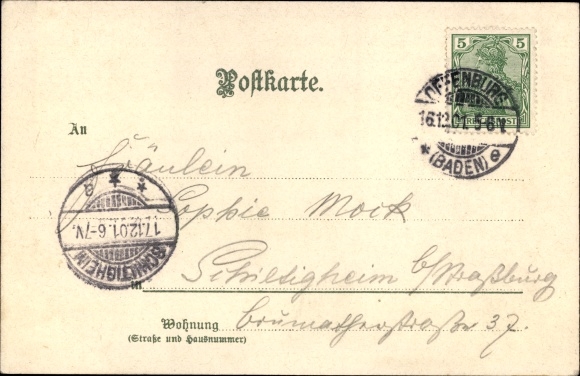 Postkarte.
5 5
REICHSPOST
OFFENBURG
16.12.01. 5-6N.
* (BADEN) e
An
Fräulein
Sophie Mock
Schiltigheim b/Straßburg
in
Brumatherstraße 37.
Wohnung
(Straße und Hausnummer)
SCHILTIGHEIM
17.12.01. 6-7N.
* * a